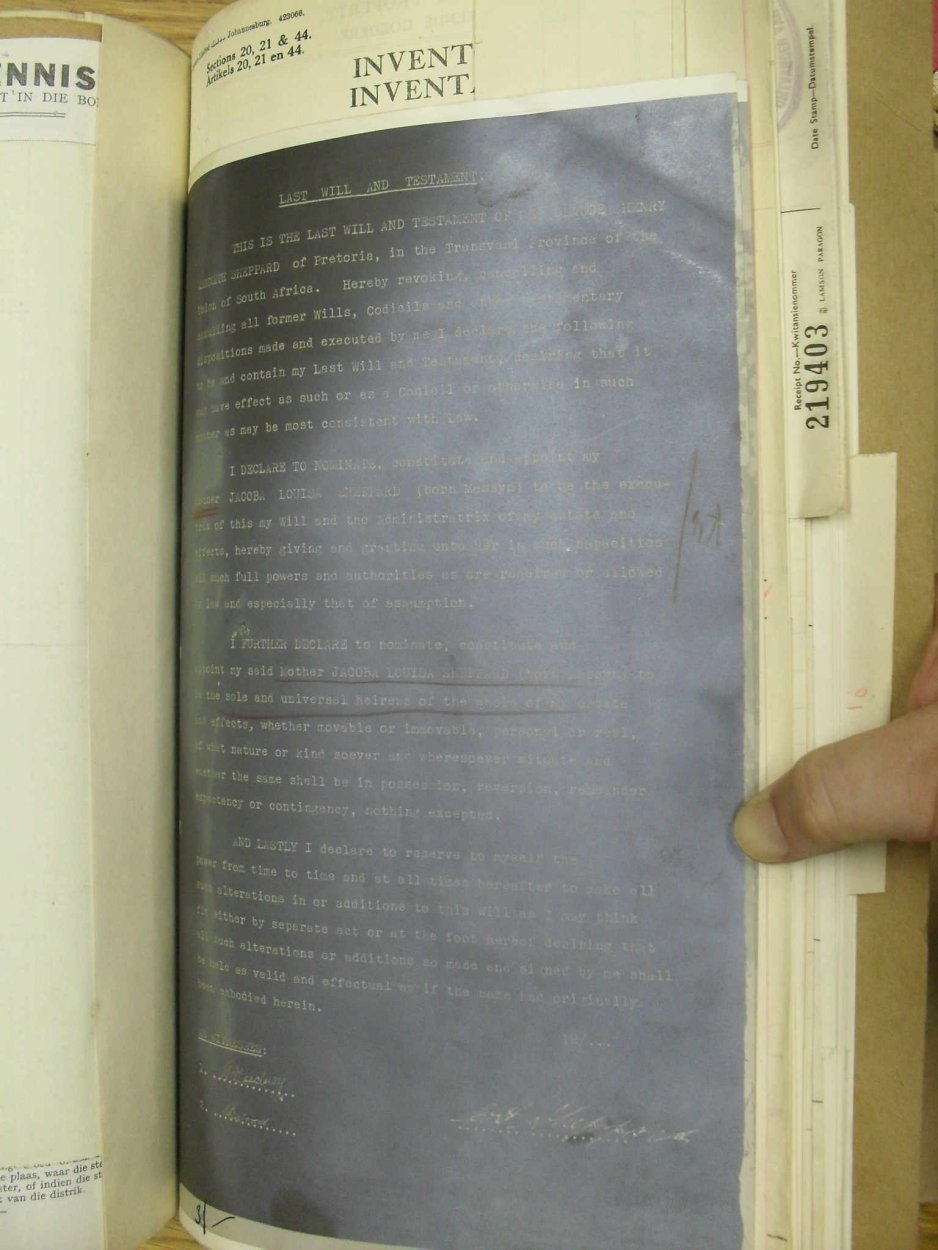 ENNIS
T IN DIE BO
Johannesburg. 423066.
Sections 20, 21 & 44.
Artikels 20, 21 en 44.
INVENT
INVENTA
LAST WILL AND TESTAMENT.
THIS IS THE LAST WILL AND TESTAMENT OF HENRY
SHEPPARD of Pretoria, in the Transvaal Province of the
Union of South Africa. Hereby revoking, cancelling and
annulling all former Wills, Codicils and other testamentary
dispositions made and executed by me, I declare the following
to be and contain my Last Will and Testament, desiring that it
may have effect as such or as a Codicil or otherwise in such
manner as may be most consistent with Law.
I DECLARE TO NOMINATE, constitute and appoint my
Mother JACOBA LOUISA SHEPPARD (born) to be the execu-
trix of this my Will and the Administratrix of my estate and
effects, hereby giving and granting unto her in such capacities
all such full powers and authorities as are required or allowed
by law and especially that of assumption.
I FURTHER DECLARE to nominate, constitute and
appoint my said Mother JACOBA LOUISA SHEPPARD (born) to
be the sole and universal heiress of the whole of my estate
and effects, whether movable or immovable, personal or real,
of what nature or kind soever and wheresoever situate and
whether the same shall be in possession, reversion, remainder
expectancy or contingency, nothing excepted.
AND LASTLY I declare to reserve to myself the
power from time to time and at all times hereafter to make all
such alterations in or additions to this Will as I may think
fit either by separate act or at the foot hereof desiring that
all such alterations or additions so made and signed by me shall
be held as valid and effectual as if the same had originally
been embodied herein.
AS WITNESSES:
1.
2.
3/-
Date Stamp—Datumstempel
Receipt No.—Kwitansienommer
219403
LAMSON PARAGON
e plaas, waar die ste
ster, of indien die st
van die distrik.